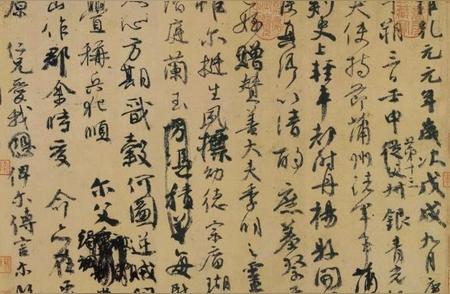 乾元元年歲次戊戌九月庚
朔三日壬申第十三從父叔銀青光
夫使持節蒲州諸軍事蒲
刺史上輕車都尉丹楊縣開
侯真卿以清酌庶羞祭
姪贈贊善大夫季明之靈
惟爾挺生夙標幼德宗廟瑚
階庭蘭玉方憑積善每慰
人心方期戩穀何圖逆賊
釁稱兵犯順爾父竭誠
山作郡余時受命亦在
原仁兄愛我俾爾傳言爾